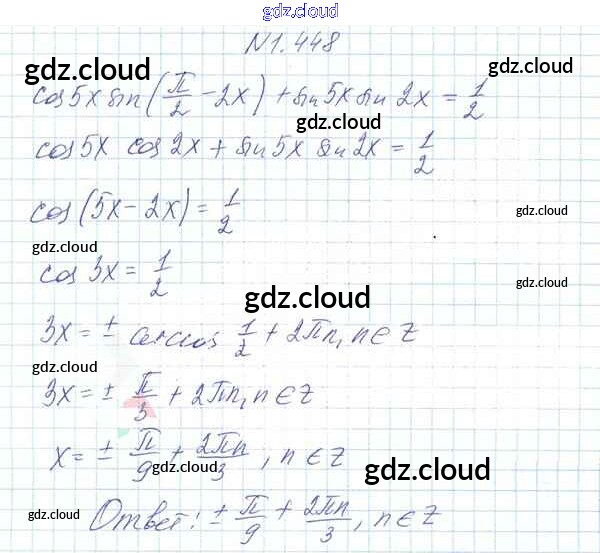 gdz.cloud
N1.448
gdz.cloud
gdz.cloud
cos 5x sin(π/2 - 2x) + sin 5x sin 2x = 1/2
gdz.cloud
cos 5x cos 2x + sin 5x sin 2x = 1/2
cos(5x - 2x) = 1/2
gdz.cloud
gdz.cloud
cos 3x = 1/2
gdz.cloud
gdz.cloud
3x = ± arccos 1/2 + 2πn, n ∈ Z
gdz.cloud
3x = ± π/3 + 2πn, n ∈ Z
gdz.cloud
x = ± π/9 + 2πn/3, n ∈ Z
gdz.cloud
gdz.cloud
Ответ: ± π/9 + 2πn/3, n ∈ Z
gdz.cloud